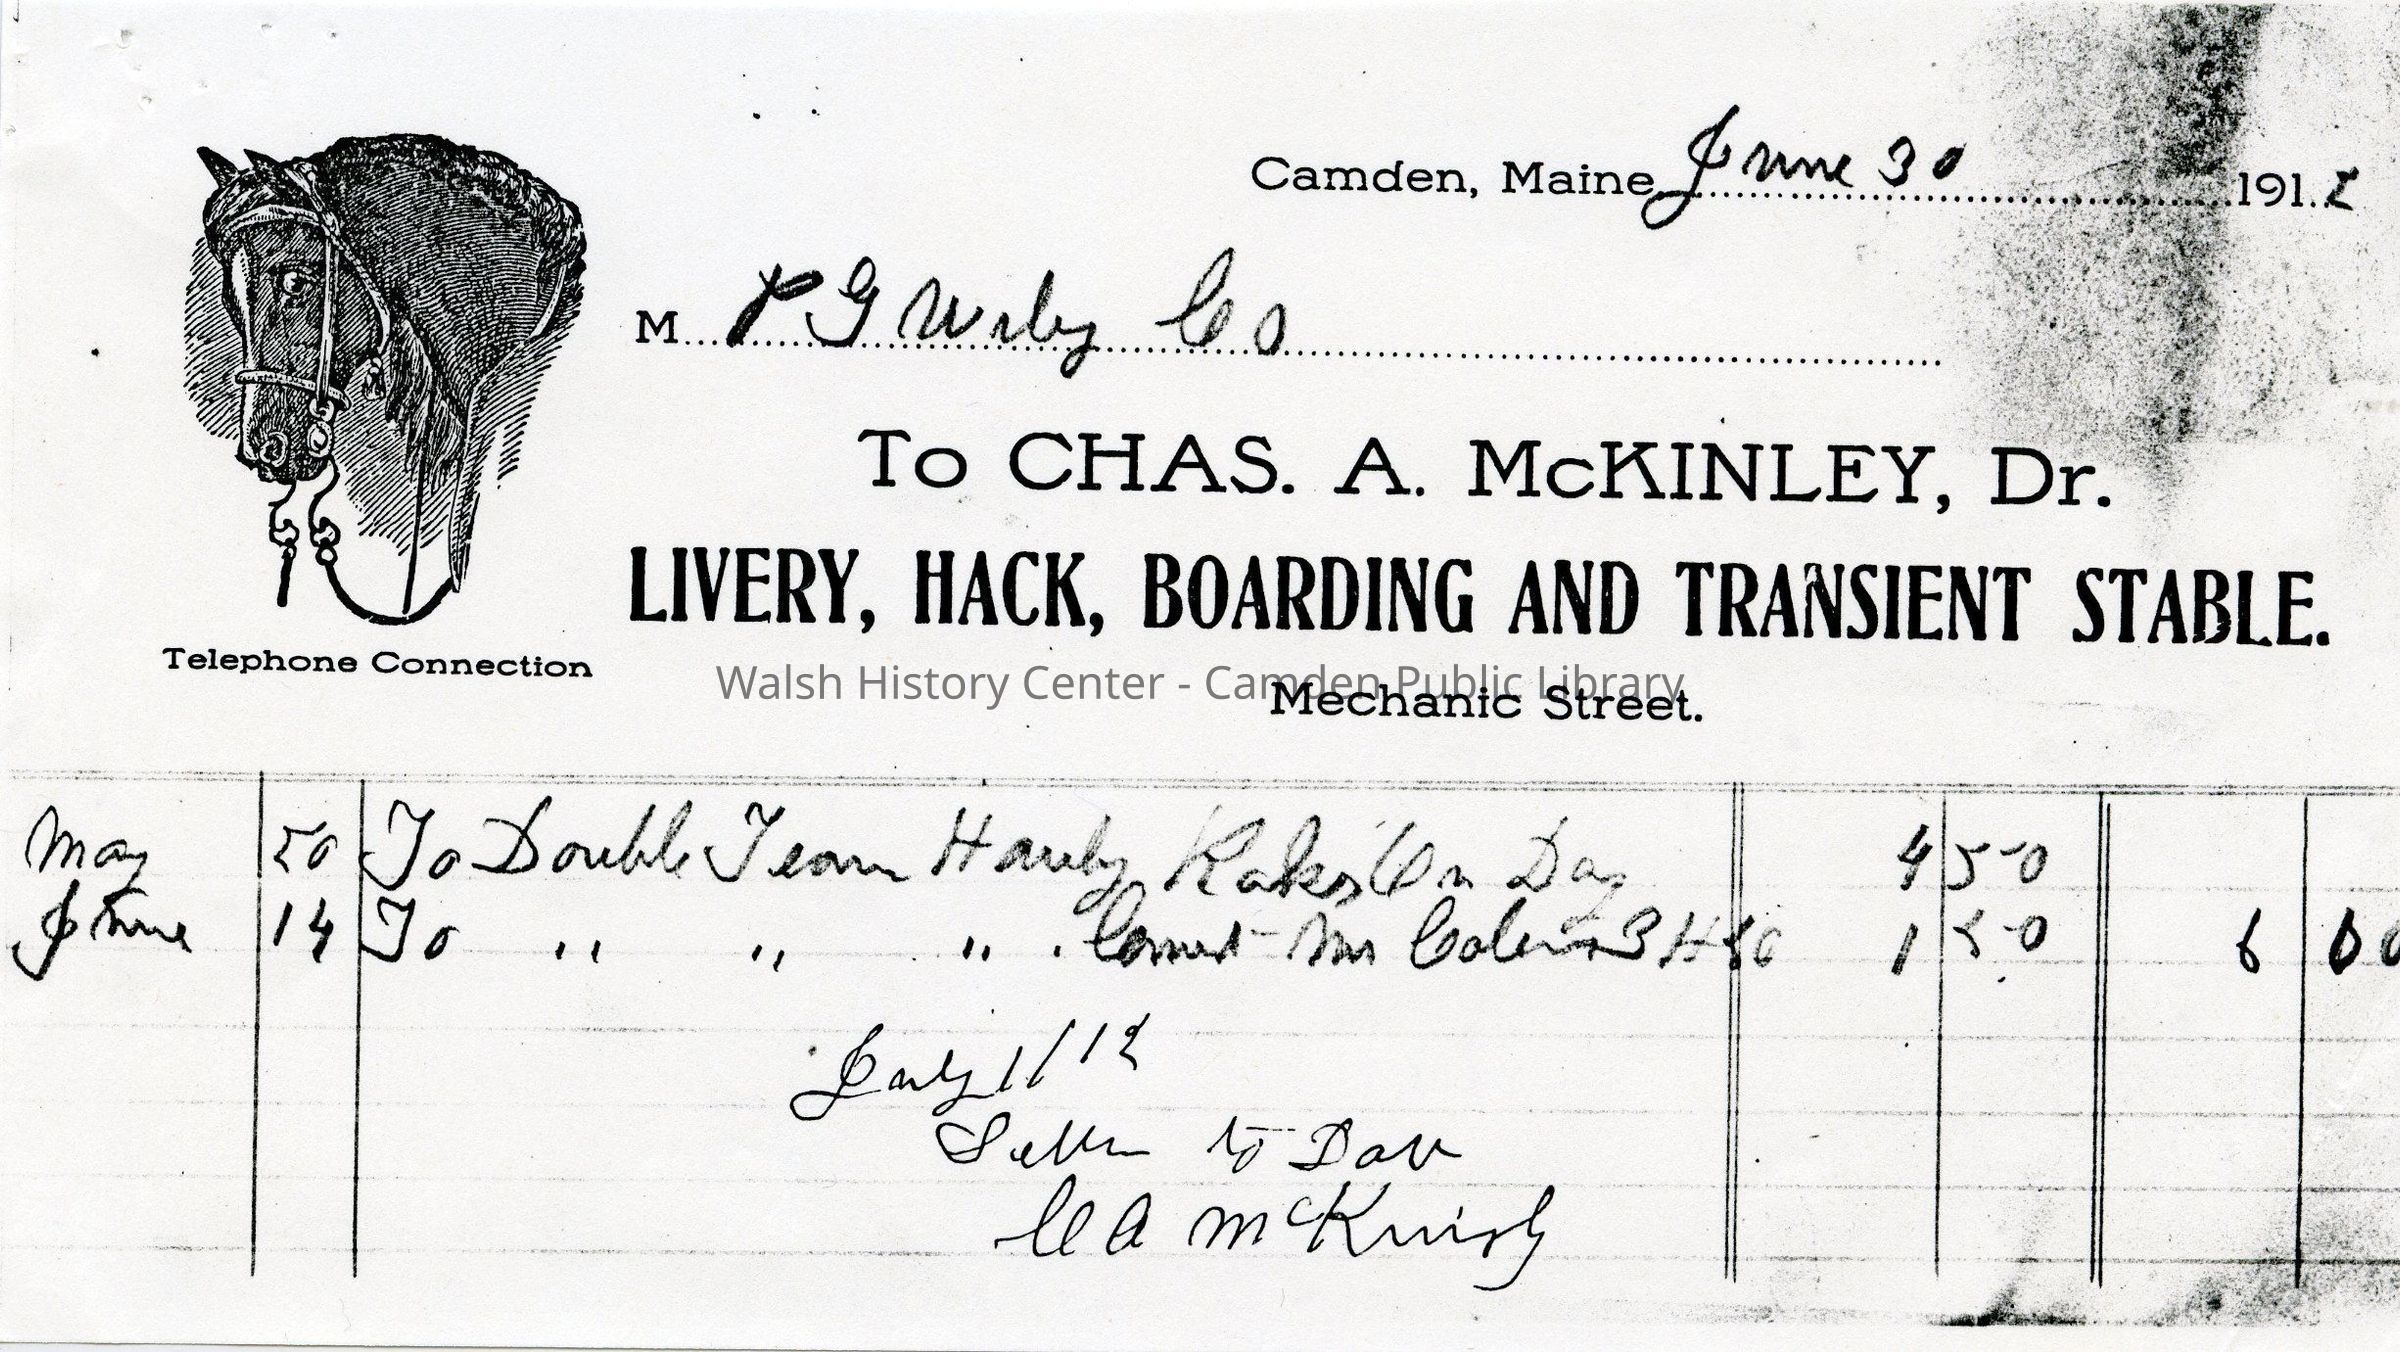 Camden, Maine, June 30 1912
M P G Co
To CHAS. A. McKINLEY, Dr.
LIVERY, HACK, BOARDING AND TRANSIENT STABLE.
Telephone Connection
Walsh History Center - Camden Public Library
Mechanic Street.
May 20 To Double Team Day 4 50
June 14 To " " " 1 50 6 00
July 1/12
to Date
C A McKinly